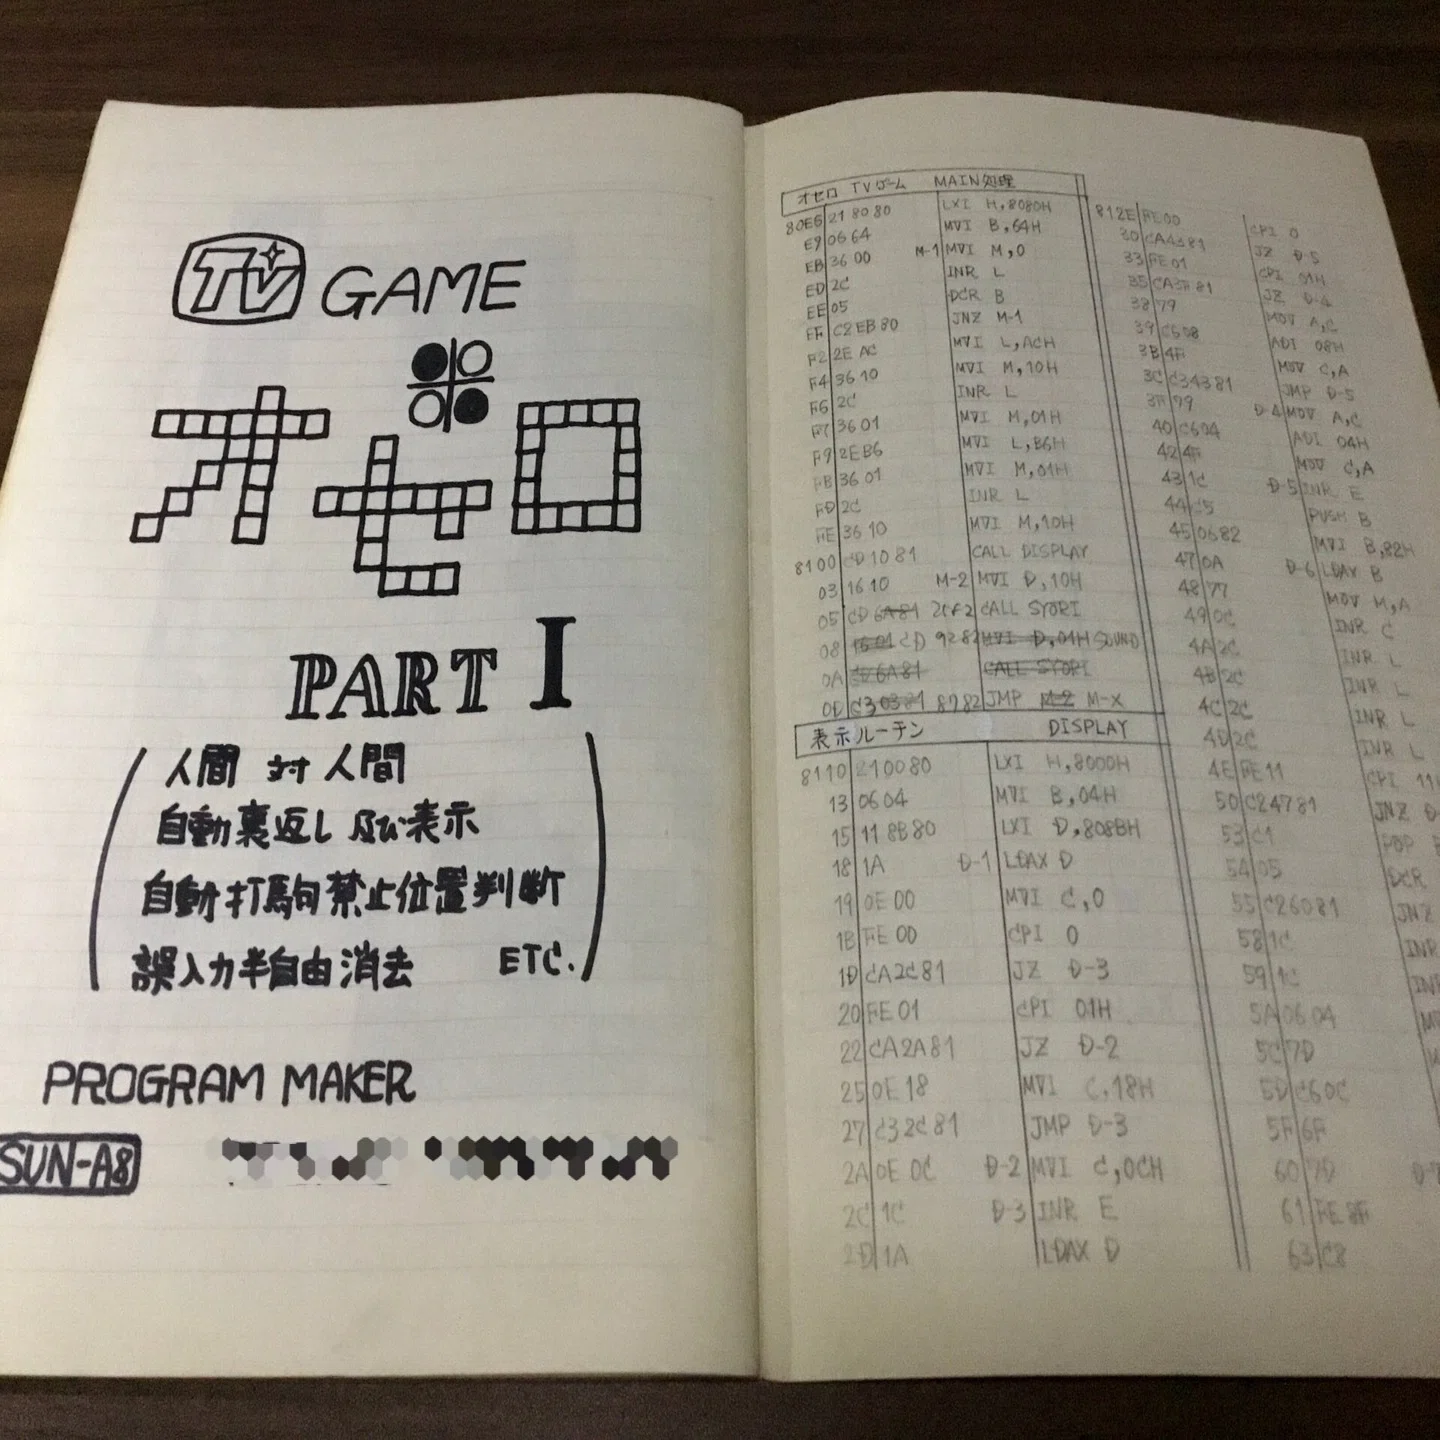 TV GAME
オセロ
PART I
人間 対 人間
自動裏返し及び表示
自動打駒禁止位置判断
誤入力半自由消去 ETC.
PROGRAM MAKER
SUN-A8
オセロ TVゲーム MAIN処理
80E6 21 80 80 LXI H,8080H
E9 06 64 MVI B,64H
EB 36 00 M-1 MVI M,0
ED 2C INR L
EE 05 DCR B
EF C2 EB 80 JNZ M-1
F2 2E AC MVI L,ACH
F4 36 10 MVI M,10H
F6 2C INR L
F7 36 01 MVI M,01H
F9 2E B6 MVI L,B6H
FB 36 01 MVI M,01H
FD 2C INR L
FE 36 10 MVI M,10H
8100 CD 10 81 CALL DISPLAY
03 16 10 M-2 MVI D,10H
05 CD 6A 81 2CF2 CALL SYORI
08 16 01 CD 92 82 MVI D,01H SOUND
0A CD 6A 81 CALL SYORI
0D C3 03 81 8782 JMP M-2 M-X
表示ルーチン DISPLAY
8110 21 00 80 LXI H,8000H
13 06 04 MVI B,04H
15 11 8B 80 LXI D,808BH
18 1A D-1 LDAX D
19 0E 00 MVI C,0
1B FE 00 CPI 0
1D CA 2C 81 JZ D-3
20 FE 01 CPI 01H
22 CA 2A 81 JZ D-2
25 0E 18 MVI C,18H
27 C3 2C 81 JMP D-3
2A 0E 0C D-2 MVI C,0CH
2C 1C D-3 INR E
2D 1A LDAX D
812E FE 00 CPI 0
30 CA 44 81 JZ D-5
33 FE 01 CPI 01H
35 CA 3F 81 JZ D-4
38 79 MOV A,C
39 C6 08 ADI 08H
3B 4F MOV C,A
3C C3 43 81 JMP D-5
3F 79 D-4 MOV A,C
40 C6 04 ADI 04H
42 4F MOV C,A
43 1C D-5 INR E
44 C5 PUSH B
45 06 82 MVI B,82H
47 0A D-6 LDAX B
48 77 MOV M,A
49 0C INR C
4A 2C INR L
4B 2C INR L
4C 2C INR L
4D 2C INR L
4E FE 11 CPI 11
50 C2 47 81 JNZ D-
53 C1 POP
54 05 DCR
55 C2 60 81 JNZ
58 1C INR
59 1C INR
5A 06 04
5C 7D
5D C6 0C
5F 6F
60 7D
61 FE 8F
63 C8